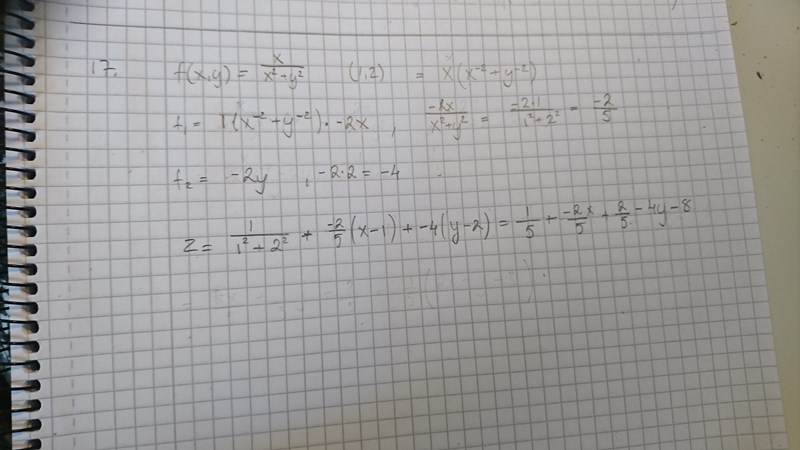 17. f(x,y) = x/(x²+y²) (1,2) = x(x⁻²+y⁻²)
f₁ = 1(x⁻²+y⁻²)·-2x , -2x/(x²+y²) = -2·1/(1²+2²) = -2/5
f₂ = -2y , -2·2 = -4
z = 1/(1²+2²) + -2/5(x-1) + -4(y-2) = 1/5 + -2x/5 + 2/5 - 4y - 8